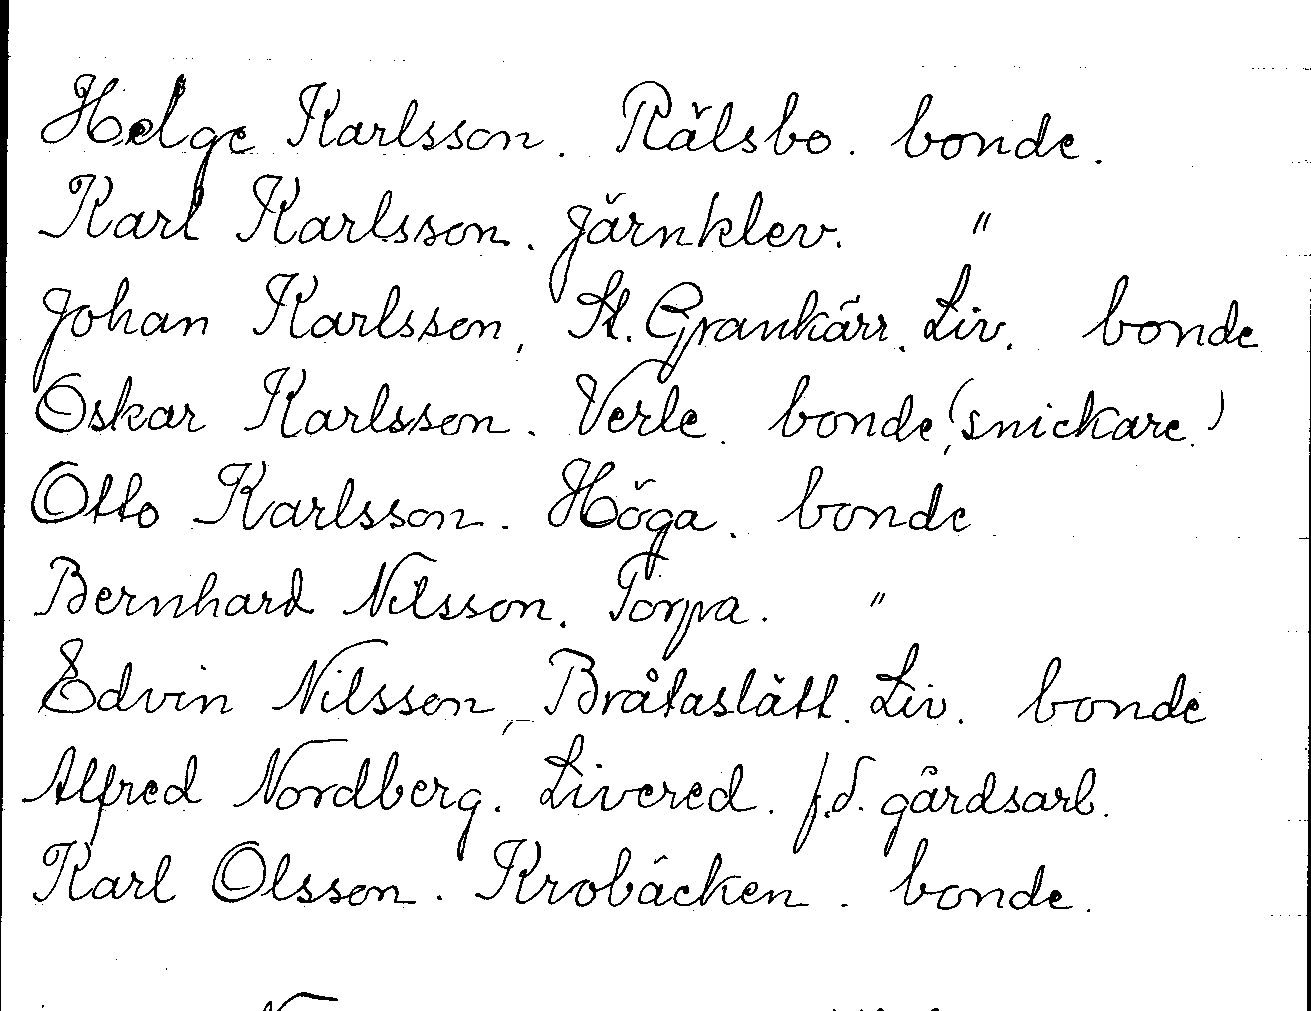 Helge Karlsson. Rälsbo. bonde.
Karl Karlsson. Järnklev. "
Johan Karlsson, St. Grankärr. Liv. bonde
Oskar Karlsson. Verle. bonde, (snickare.)
Otto Karlsson. Höga. bonde
Bernhard Nilsson. Torpa. "
Edvin Nilsson, Bråtaslätt. Liv. bonde
Alfred Nordberg. Livered. f.d. gårdsarb.
Karl Olsson. Krobäcken. bonde.